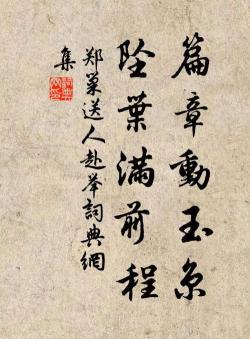 篇章動玉京
坠葉滿前程
郑巢送人赴举詞典網
集